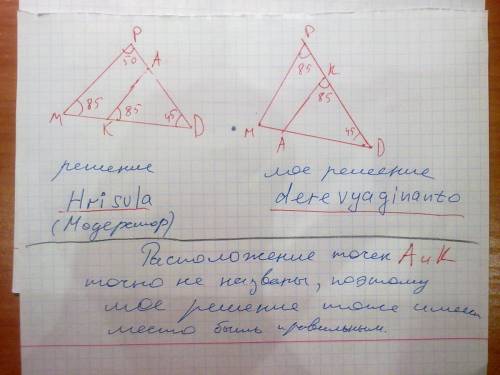 P
A
50
85
85
45
M
K
D
P
K
85
85
45
M
A
D
решение
Hrisula
(Модератор)
мое решение
derevyaginanto
Расположение точек A и K
точно не названы, поэтому
мое решение тоже имеет
место быть правильным.